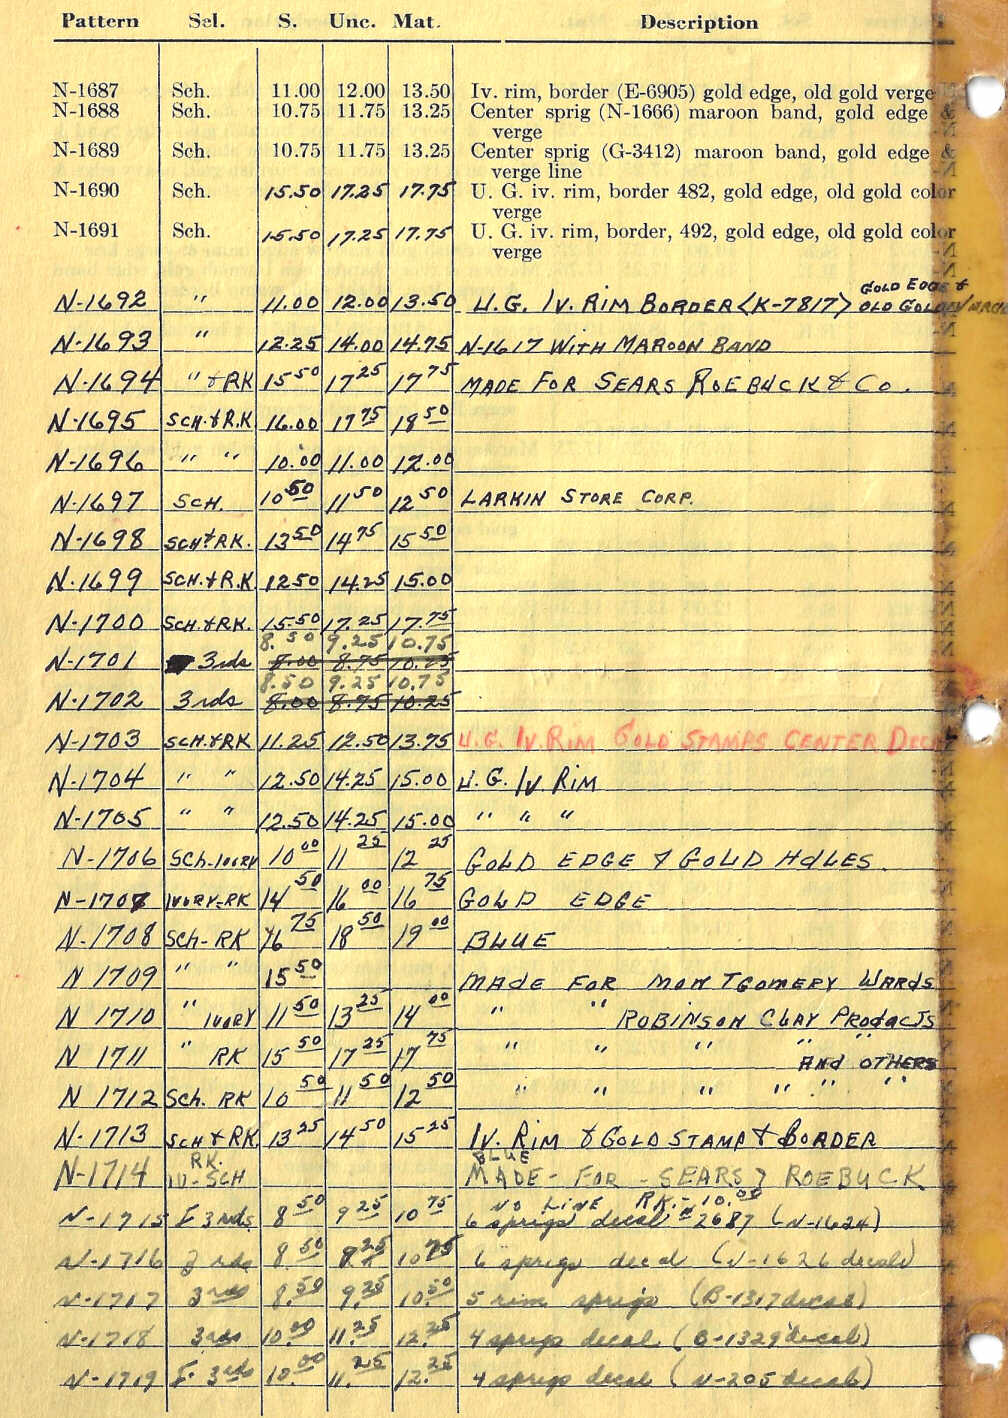 Pattern Sel. S. Unc. Mat. Description
N-1687 Sch. 11.00 12.00 13.50 Iv. rim, border (E-6905) gold edge, old gold verge
N-1688 Sch. 10.75 11.75 13.25 Center sprig (N-1666) maroon band, gold edge &
verge
N-1689 Sch. 10.75 11.75 13.25 Center sprig (G-3412) maroon band, gold edge &
verge line
N-1690 Sch. 15.50 17.25 17.75 U. G. iv. rim, border 482, gold edge, old gold color
verge
N-1691 Sch. 15.50 17.25 17.75 U. G. iv. rim, border, 492, gold edge, old gold color
verge
GOLD EDGE &
N-1692 " 11.00 12.00 13.50 U.G. IV. RIM BORDER (K-7817) OLD GOLDEN
N-1693 " 12.25 14.00 14.75 N-1617 WITH MAROON BAND
N-1694 " & RK 15 50 17 25 17 75 MADE FOR SEARS ROEBUCK & Co.
N-1695 SCH. & R.K 16.00 17 75 18 50
N-1696 " " 10.00 11.00 12.00
N-1697 SCH. 10 50 11 50 12 50 LARKIN STORE CORP.
N-1698 SCH & RK. 13 50 14 75 15 50
N-1699 SCH. & R.K 12 50 14.25 15.00
N-1700 SCH. & RK. 15.50 17.25 17.75
8.50 9.25 10.75
N-1701 3rds 8.00 8.75 10.25
8.50 9.25 10.75
N-1702 3rds 8.00 8.75 10.25
N-1703 SCH. & RK 11.25 12.50 13.75 U.G. IV. RIM GOLD STAMPS CENTER
N-1704 " " 12.50 14.25 15.00 U.G. IV RIM
N-1705 " " 12.50 14.25 15.00 " " "
N-1706 SCh-IVORY 10 00 11 25 12 25 GOLD EDGE & GOLD HOLES.
N-1707 IVORY-RK 14 50 16 00 16 75 GOLD EDGE
N-1708 SCh-RK 16 75 18 50 19 00 BLUE
N 1709 " " 15 50 MADE FOR MONTGOMERY WARDS
N 1710 " IVORY 11 50 13 25 14 00 " " ROBINSON CLAY PRODUCTS
N 1711 " RK 15 50 17 25 17 75 " " " " "
AND OTHERS
N 1712 Sch. RK 10 50 11 50 12 50 " " " " " "
N-1713 SCH & RK 13 25 14 50 15 25 IV. RIM & GOLD STAMP & BORDER
RK. BLUE
N-1714 IV-SCH MADE - FOR - SEARS } ROEBUCK
NO LINE RK.- 10.00
N-1715 I 3rds. 8 50 9 25 10 75 6 sprigs decal # 2687 (N-1624)
N-1716 3 rds 8.50 10 75 6 sprigs decal (N-1626 decals)
N-1717 3rds 8.50 9.25 10.50 5 rim sprigs (B-1317 decal)
N-1718 3rds 10.00 11.25 12.25 4 sprigs decal (B-1329 decal)
N-1719 I. 3rds 10.00 11.25 12.25 4 sprigs decal (N-205 decal)